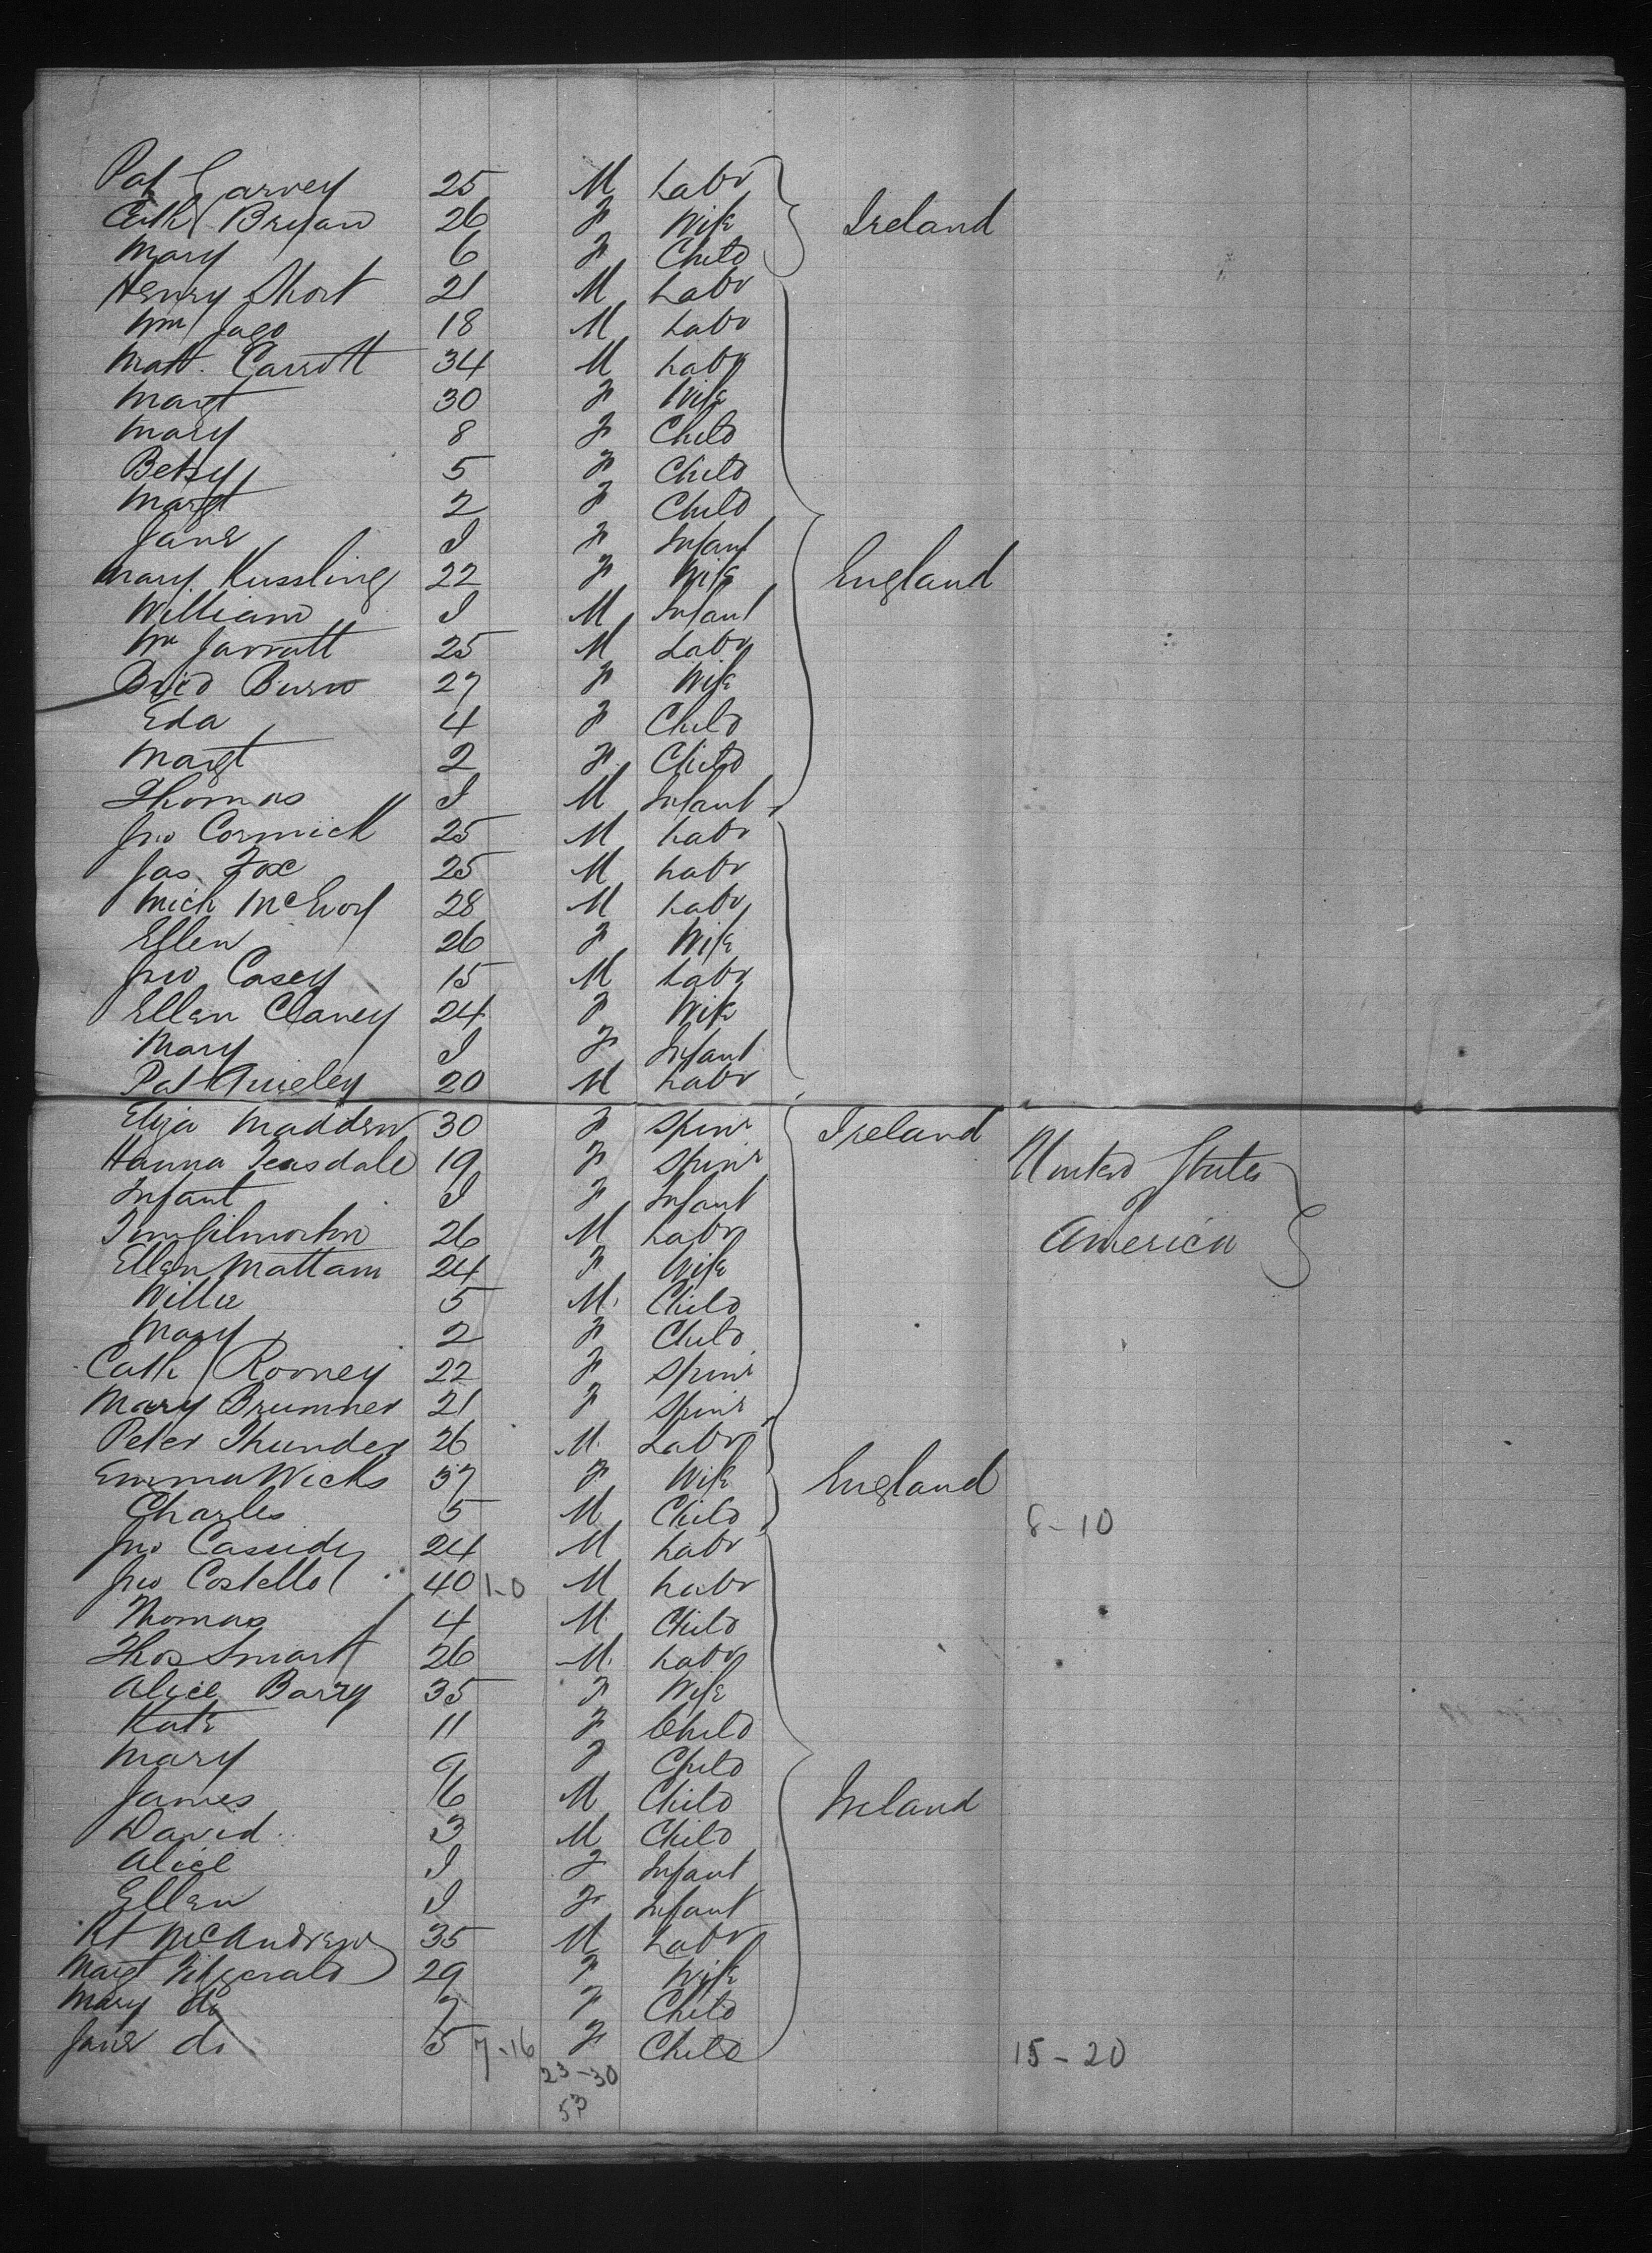 Pat Garvey 25 M Labr
Cath Bryan 26 F Wife Ireland
Mary 6 F Child
Henry Short 21 M Labr
Wm Jago 18 M Labr
Matt. Carrott 34 M Labr
Margt 30 F Wife
Mary 8 F Child
Betsy 5 F Child
Margt 2 F Child
Jane I F Infant
Mary Kussling 22 F Wife England
William I M Infant
Wm Jarratt 25 M Labr
Brid Burn 27 F Wife
Eda 4 F Child
Margt 2 F Child
Thomas I M Infant
Jno Cormick 25 M Labr
Jas. Fox 25 M Labr
Mich McEvoy 28 M Labr
Ellen 26 F Wife
Jno Casey 15 M Labr
Ellen Claney 24 F Wife
Mary I F Infant
Pat 20 M Labr
Eliza Madden 30 F Spinr Ireland
Hanna Teasdale 19 F Spinr United States
Infant I F Infant of
26 M Labr America
Ellen Mattam 24 F Wife
Willie 5 M. Child
Mary 2 F Child
Cath Rooney 22 F Spinr
Mary Brumner 21 F Spinr
Peter Thunder 26 M. Labr
Emma Wicks 37 F Wife England
Charles 5 M Child 8-10
Jno Cassidy 24 M Labr
Jno Costello 40 1-0 M Labr
Thomas 4 M. Child
Thos Smart 26 M. Labr
Alice Barry 35 F Wife
Kate 11 F Child
Mary 9 F Child
James 6 M Child Ireland
David 3 M Child
Alice I F Infant
Ellen I F Infant
Pt McAndrew 35 M Labr
Margt Fitzgerald 29 F Wife
Mary do 7 F Child
Jane do 5 7-16 F Child 15-20
23-30
53